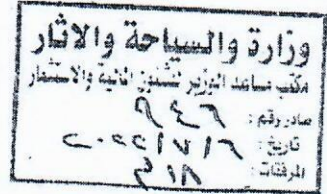 وزارة والسياحة والاثار
مكتب مساعد الوزير للشئون المالية والاستثمار
صادر رقم : ٩٤٦
تاريخ : ٢٠٢٢/٧/٦
المرفقات :